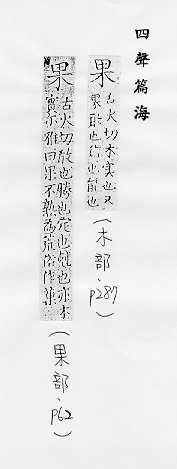 四聲篇海
果
古火切木實也又
果敢也信也能也
(木部、p287)
果
古火切放也勝也定也尅也亦木
實尔雅曰果不熟為荒俗作菓
(果部、p62)